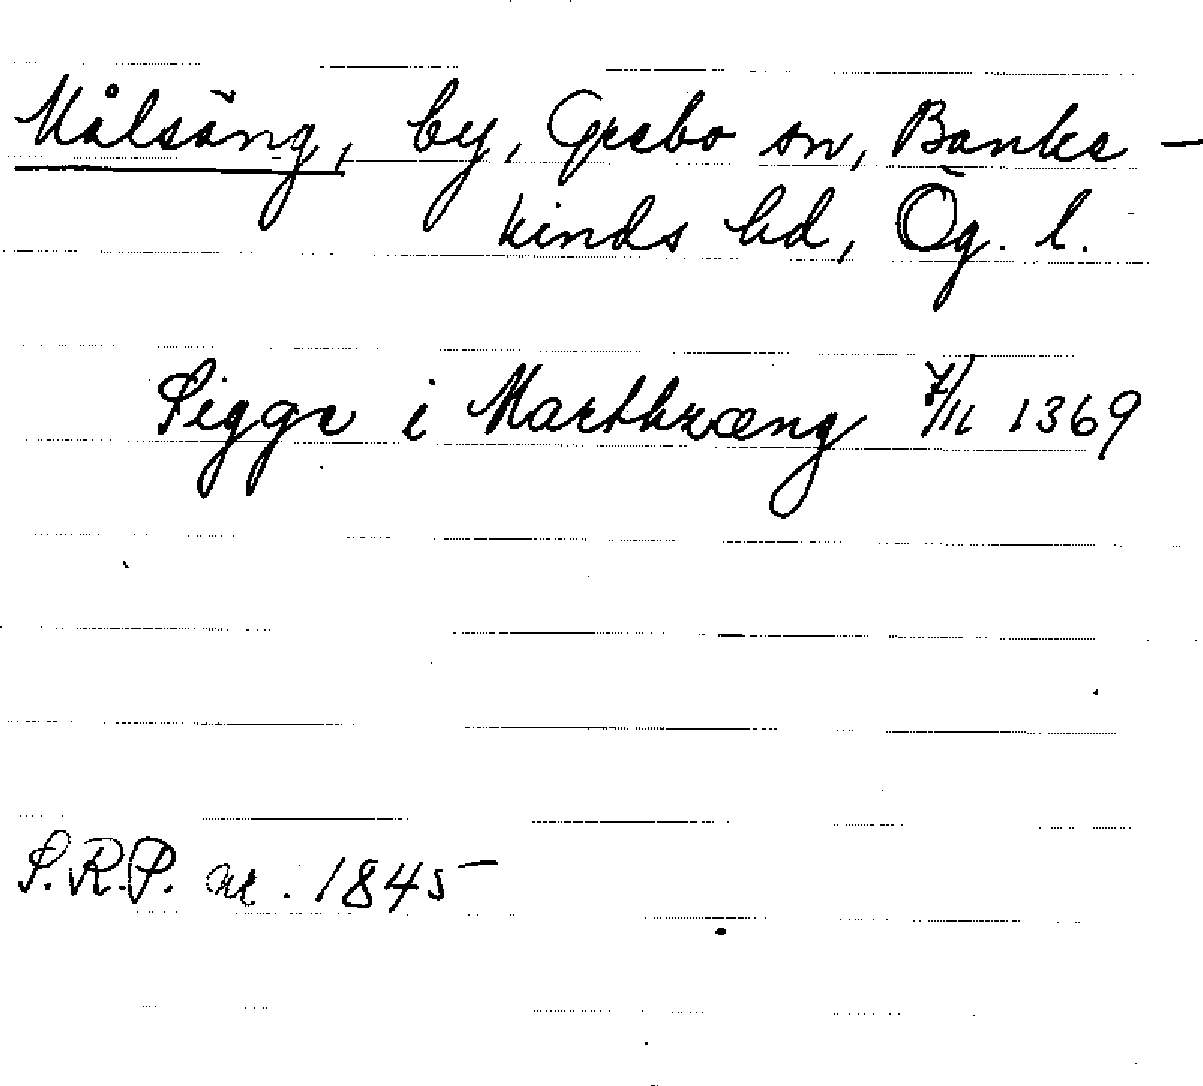 Målsäng, by, Grebo sn, Banke-
kinds hd, Ög. l.
Sigge i Marthræng 7/11 1369
S.R.P. nr. 1845